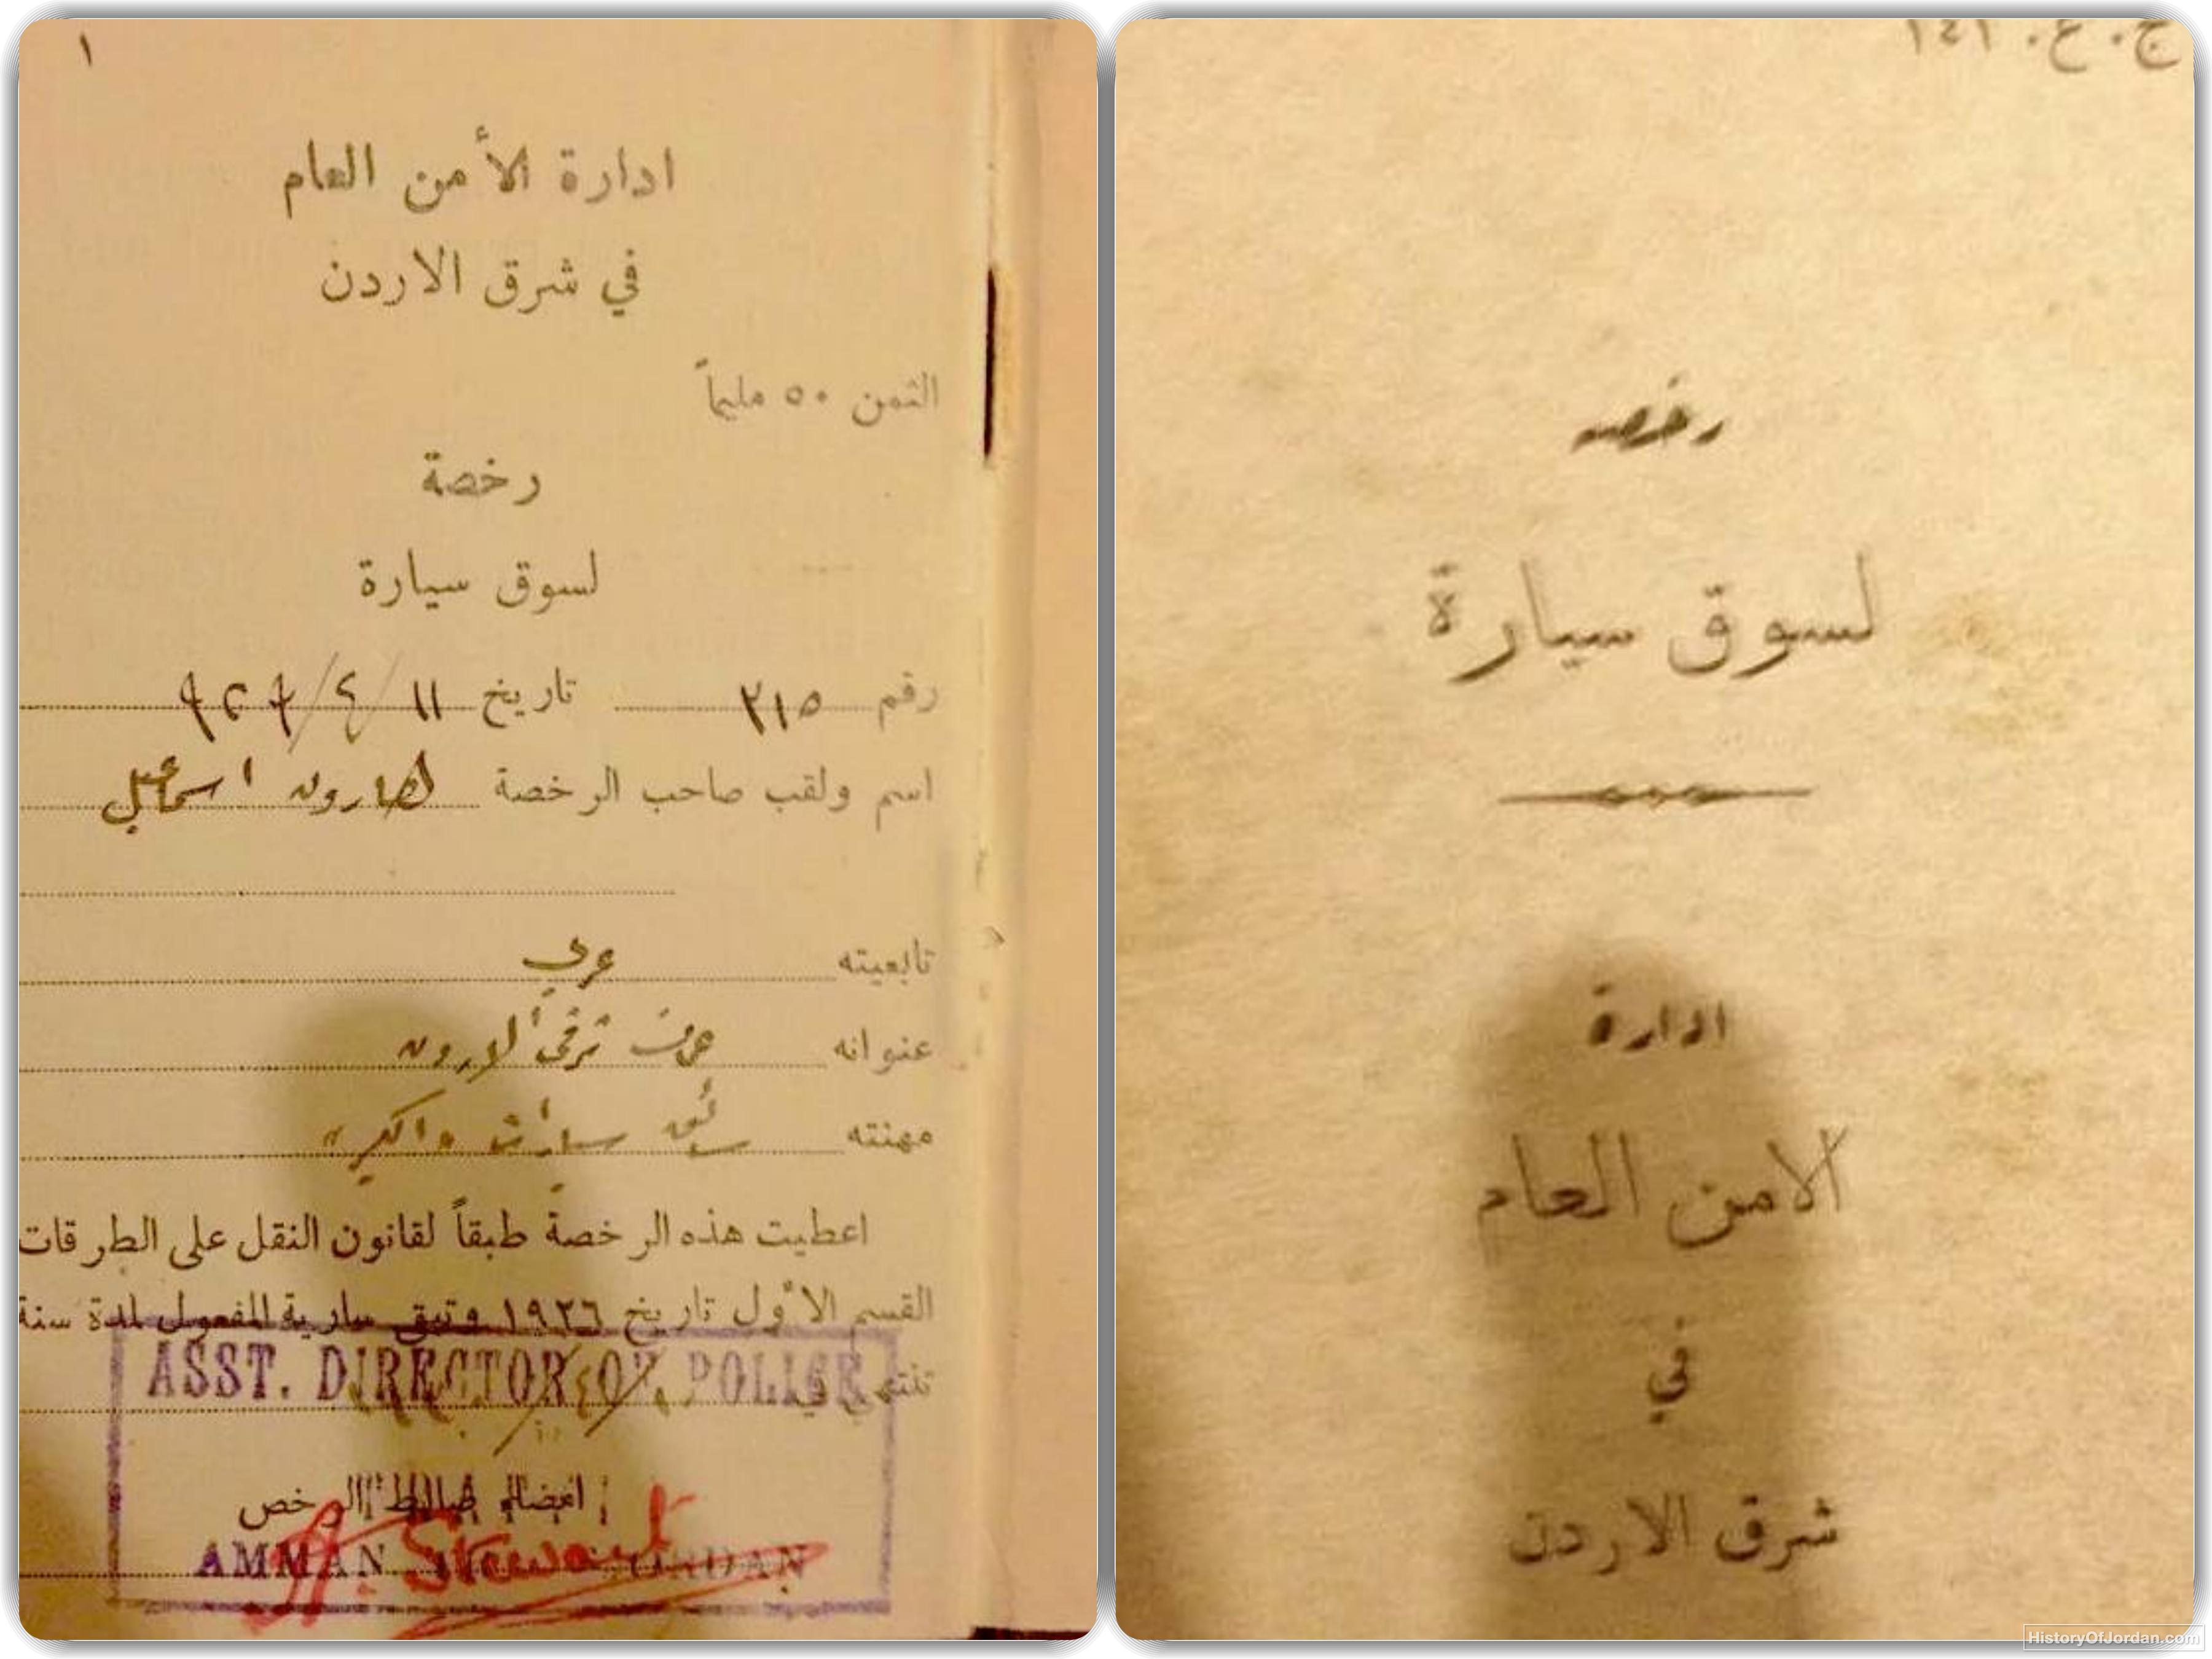 ١
ادارة الأمن العام
في شرق الاردن
الثمن ٥٠ مليماً
رخصة
لسوق سيارة
رقم ٢١٥ تاريخ ١١/٤/
اسم ولقب صاحب الرخصة هارون اسماعيل
تابعيته عربي
عنوانه عمان شرقي الاردن
مهنته سائق سيارات
اعطيت هذه الرخصة طبقاً لقانون النقل على الطرقات
القسم الاول تاريخ ١٩٢٦ وتبقى سارية المفعول لمدة سنة
تنتهي في
ASST. DIRECTOR OF POLICE
امضاء ضابط الرخص
AMMAN
Stewart
ج. ع. ١٤١
رخصه
لسوق سيارة
ادارة
الامن العام
في
شرق الاردن
HistoryOfJordan.com